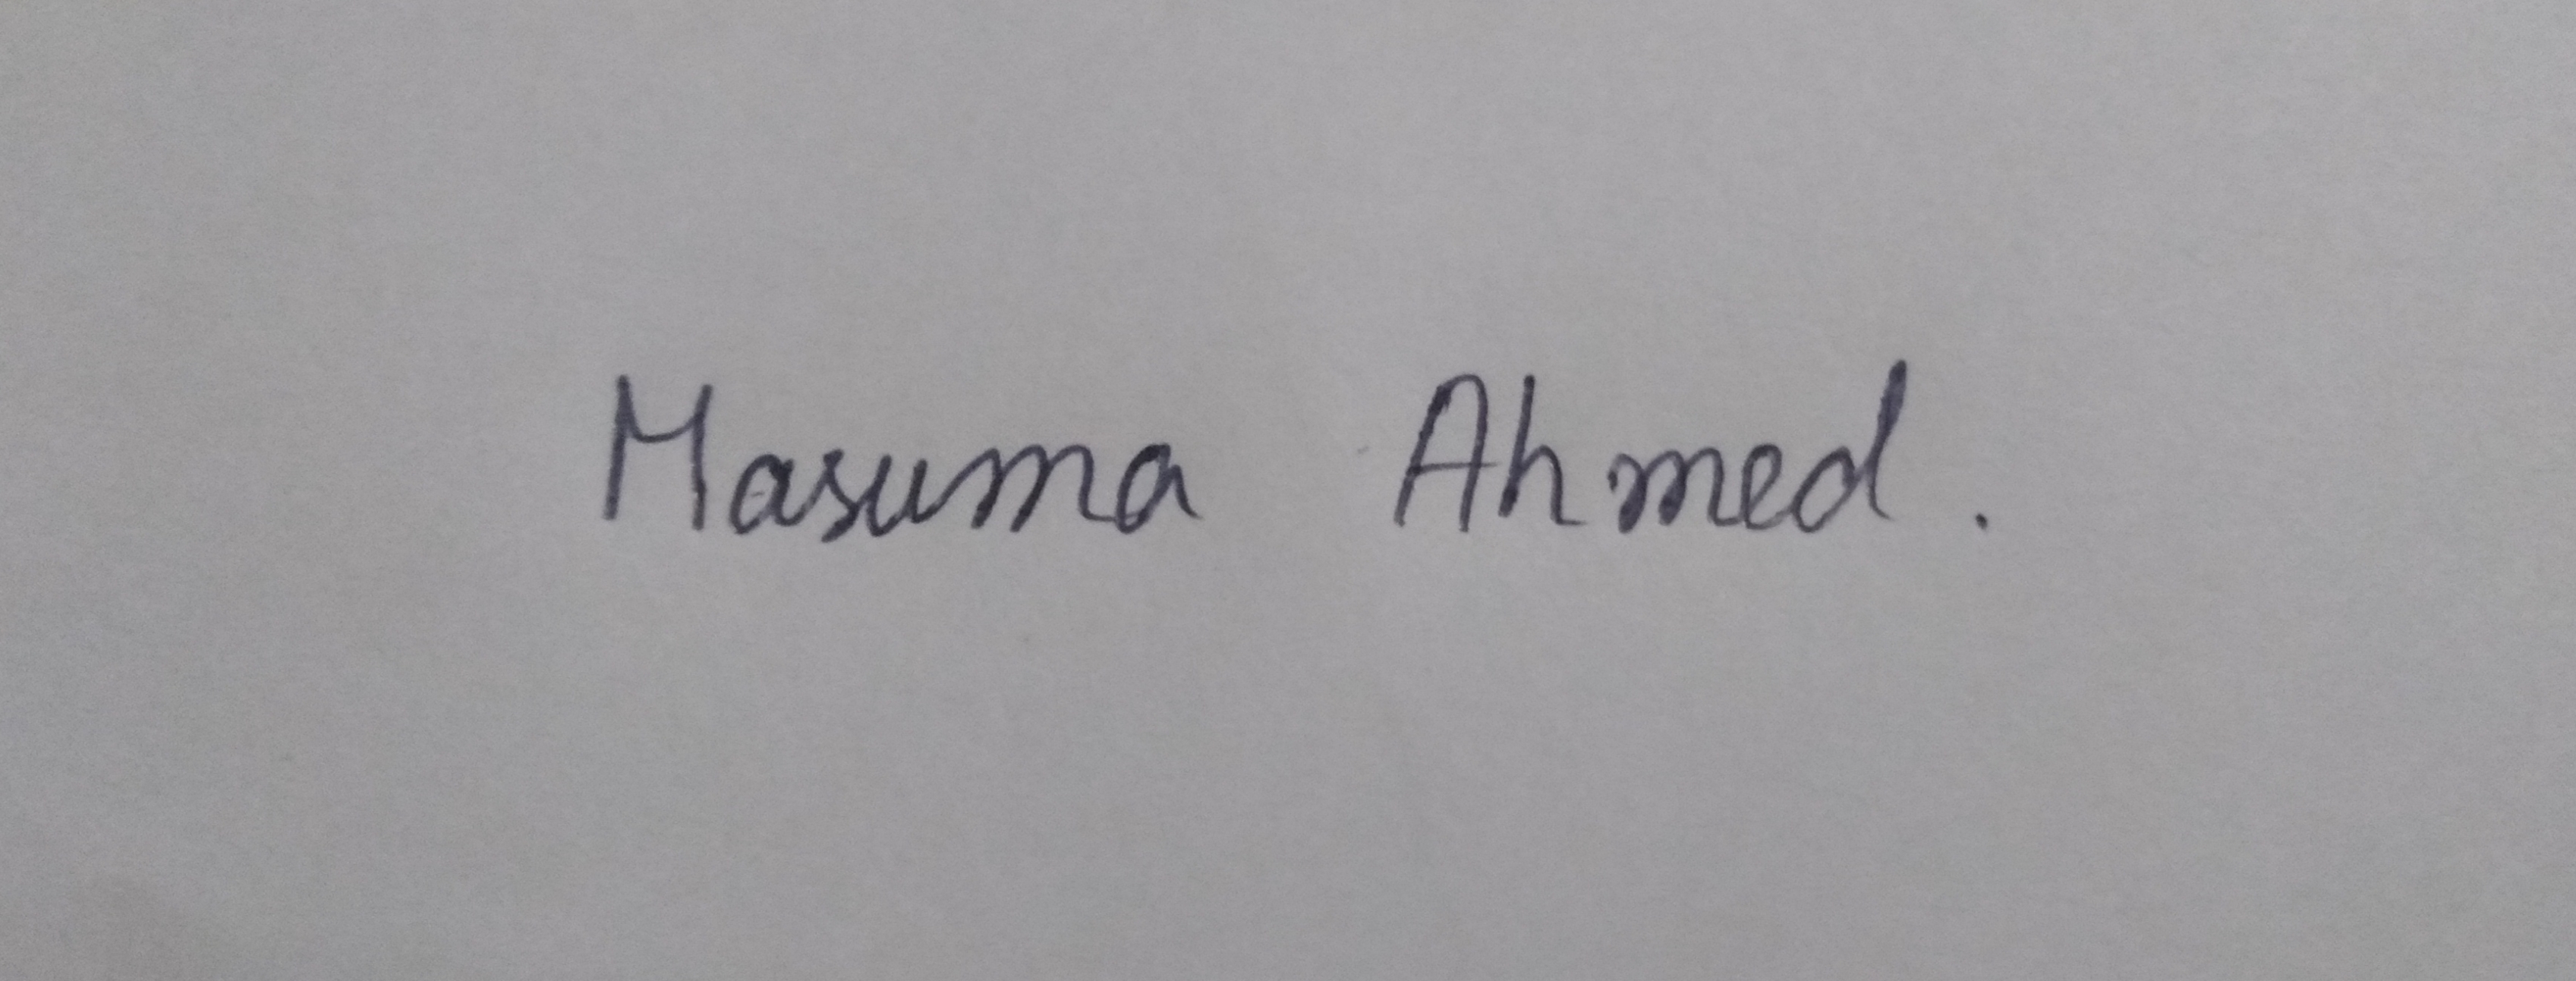 Masuma Ahmed.